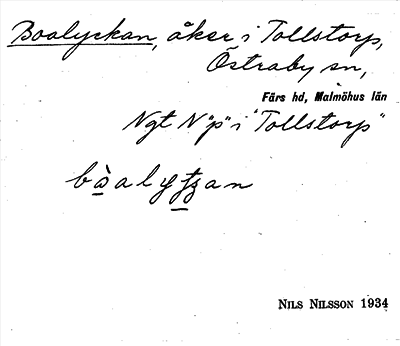 Boalyckan, åker i Tollstorp,
Östraby sn,
Färs hd, Malmöhus län
Ngt N "p" i "Tollstorp"
bòalyʈʂan
NILS NILSSON 1934